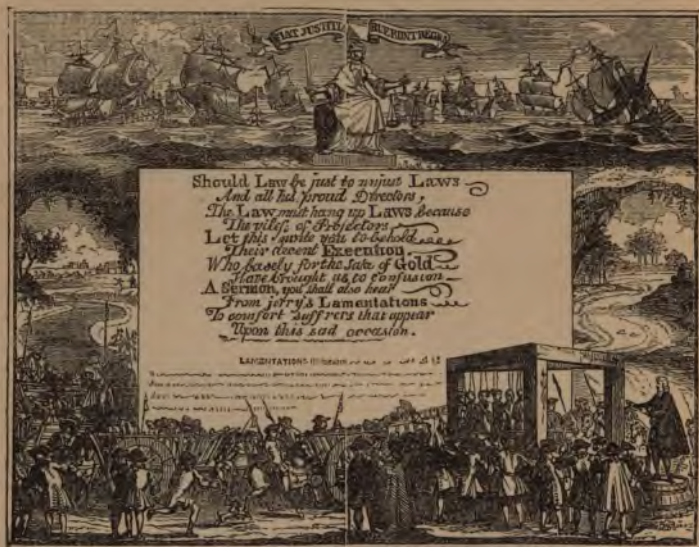 FIAT JUSTITIA RUERINT REGNA
Should Law be just to unjust Laws
And all his proud Directors,
The Law must hang up Laws because
The vilest of Projectors
Let this invite you to behold
Their decent Execution
Who basely for the sake of Gold
Have brought us to confusion
A Sermon, you shall also hear
From jerry's Lamentations
To comfort Suff'rers that appear
Upon this sad occasion.
LAMENTATIONS